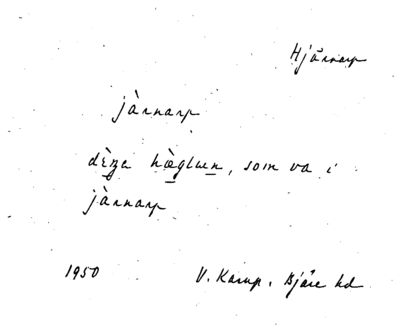 Hjärnarp
jà̀rnarp
dɛ̀ʒa hæ̀glɯen, som va i
jàrnarp
1950 V. Karup, Bjäre hd